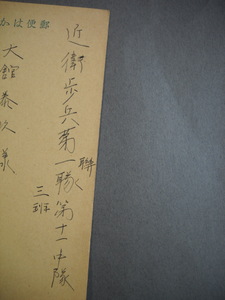 郵便はか
近衛歩兵第一聯隊第十一中隊
三班
大館泰久様